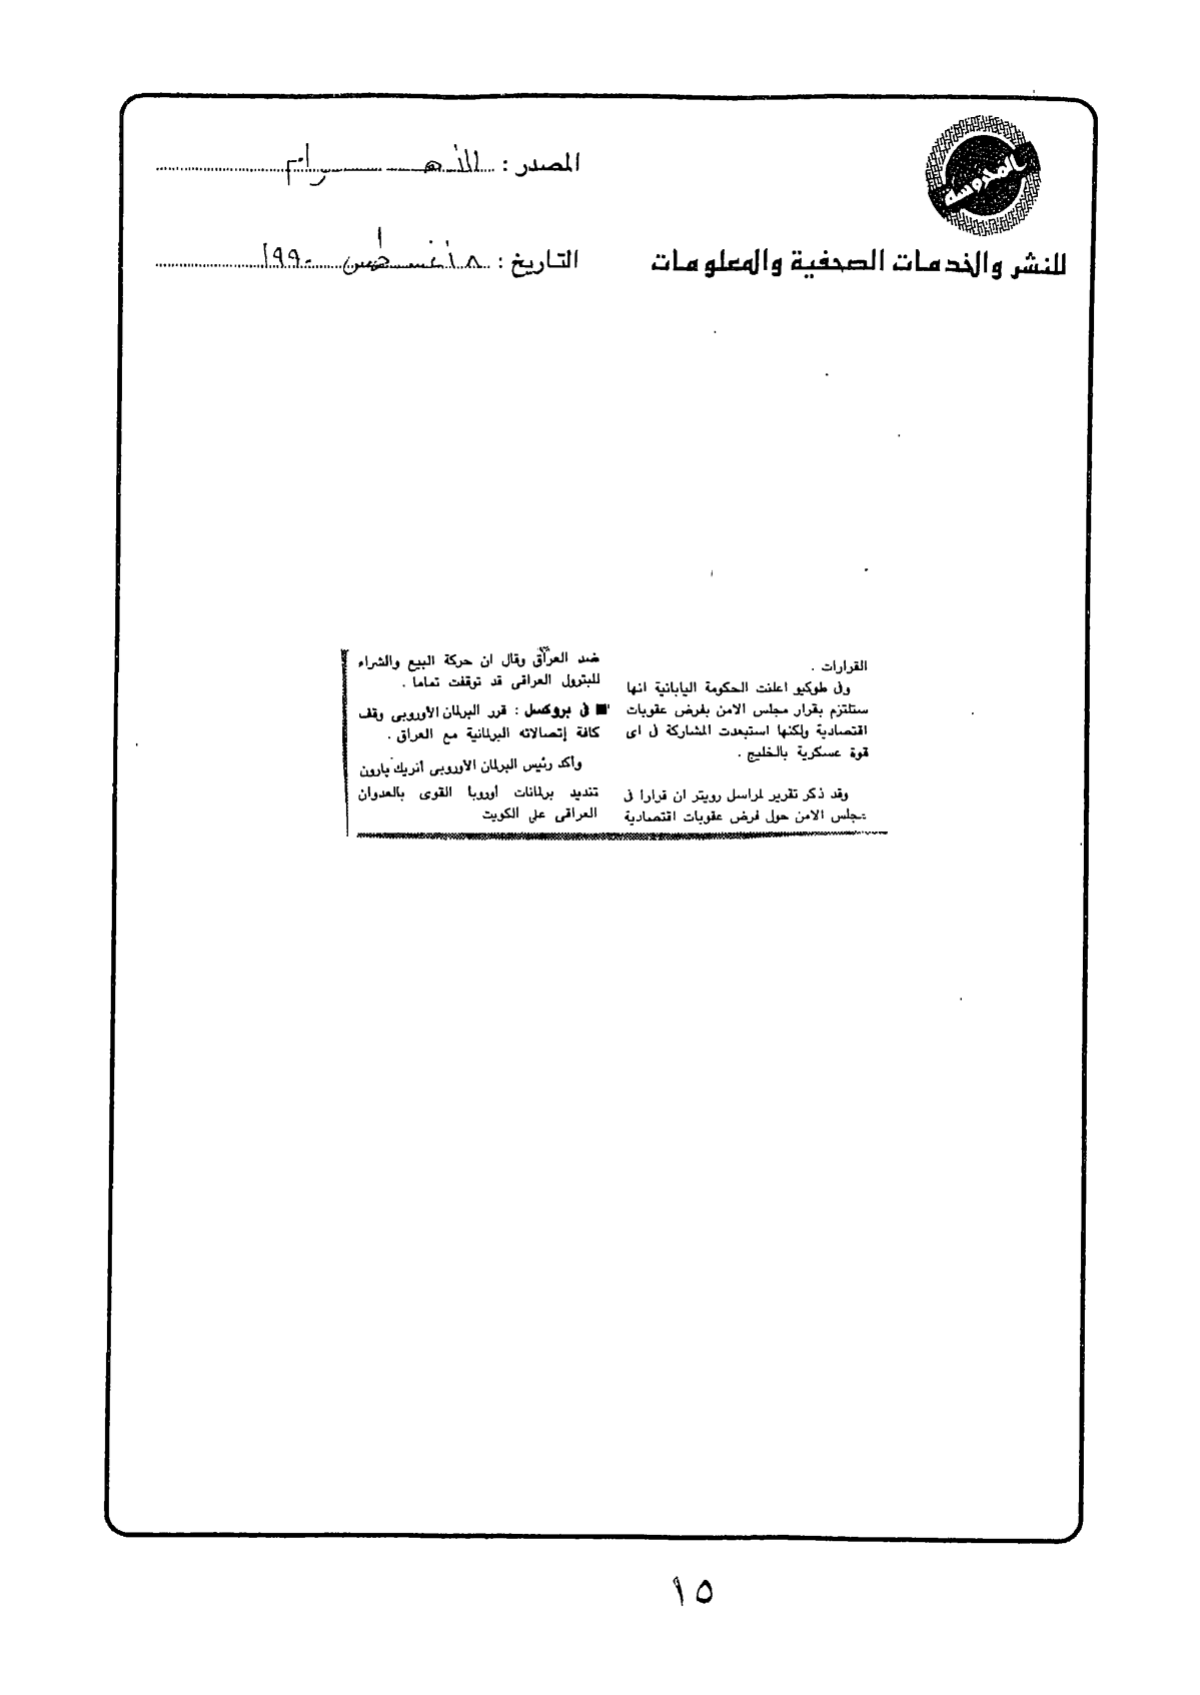 المحروسة
للنشر والخدمات الصحفية والمعلومات
المصدر : الأهرام
التاريخ : ٨ أغسطس ١٩٩٠
القرارات .
وفى طوكيو اعلنت الحكومة اليابانية انها
ستلتزم بقرار مجلس الامن بفرض عقوبات
اقتصادية ولكنها استبعدت المشاركة فى اى
قوة عسكرية بالخليج .
وقد ذكر تقرير لمراسل رويتر ان قرارا فى
مجلس الامن حول فرض عقوبات اقتصادية
ضد العراق وقال ان حركة البيع والشراء
للبترول العراقى قد توقفت تماما .
■ فى بروكسل : قرر البرلمان الأوروبى وقف
كافة إتصالاته البرلمانية مع العراق .
وأكد رئيس البرلمان الأوروبى أنريك بارون
تنديد برلمانات أوروبا القوى بالعدوان
العراقى على الكويت
١٥